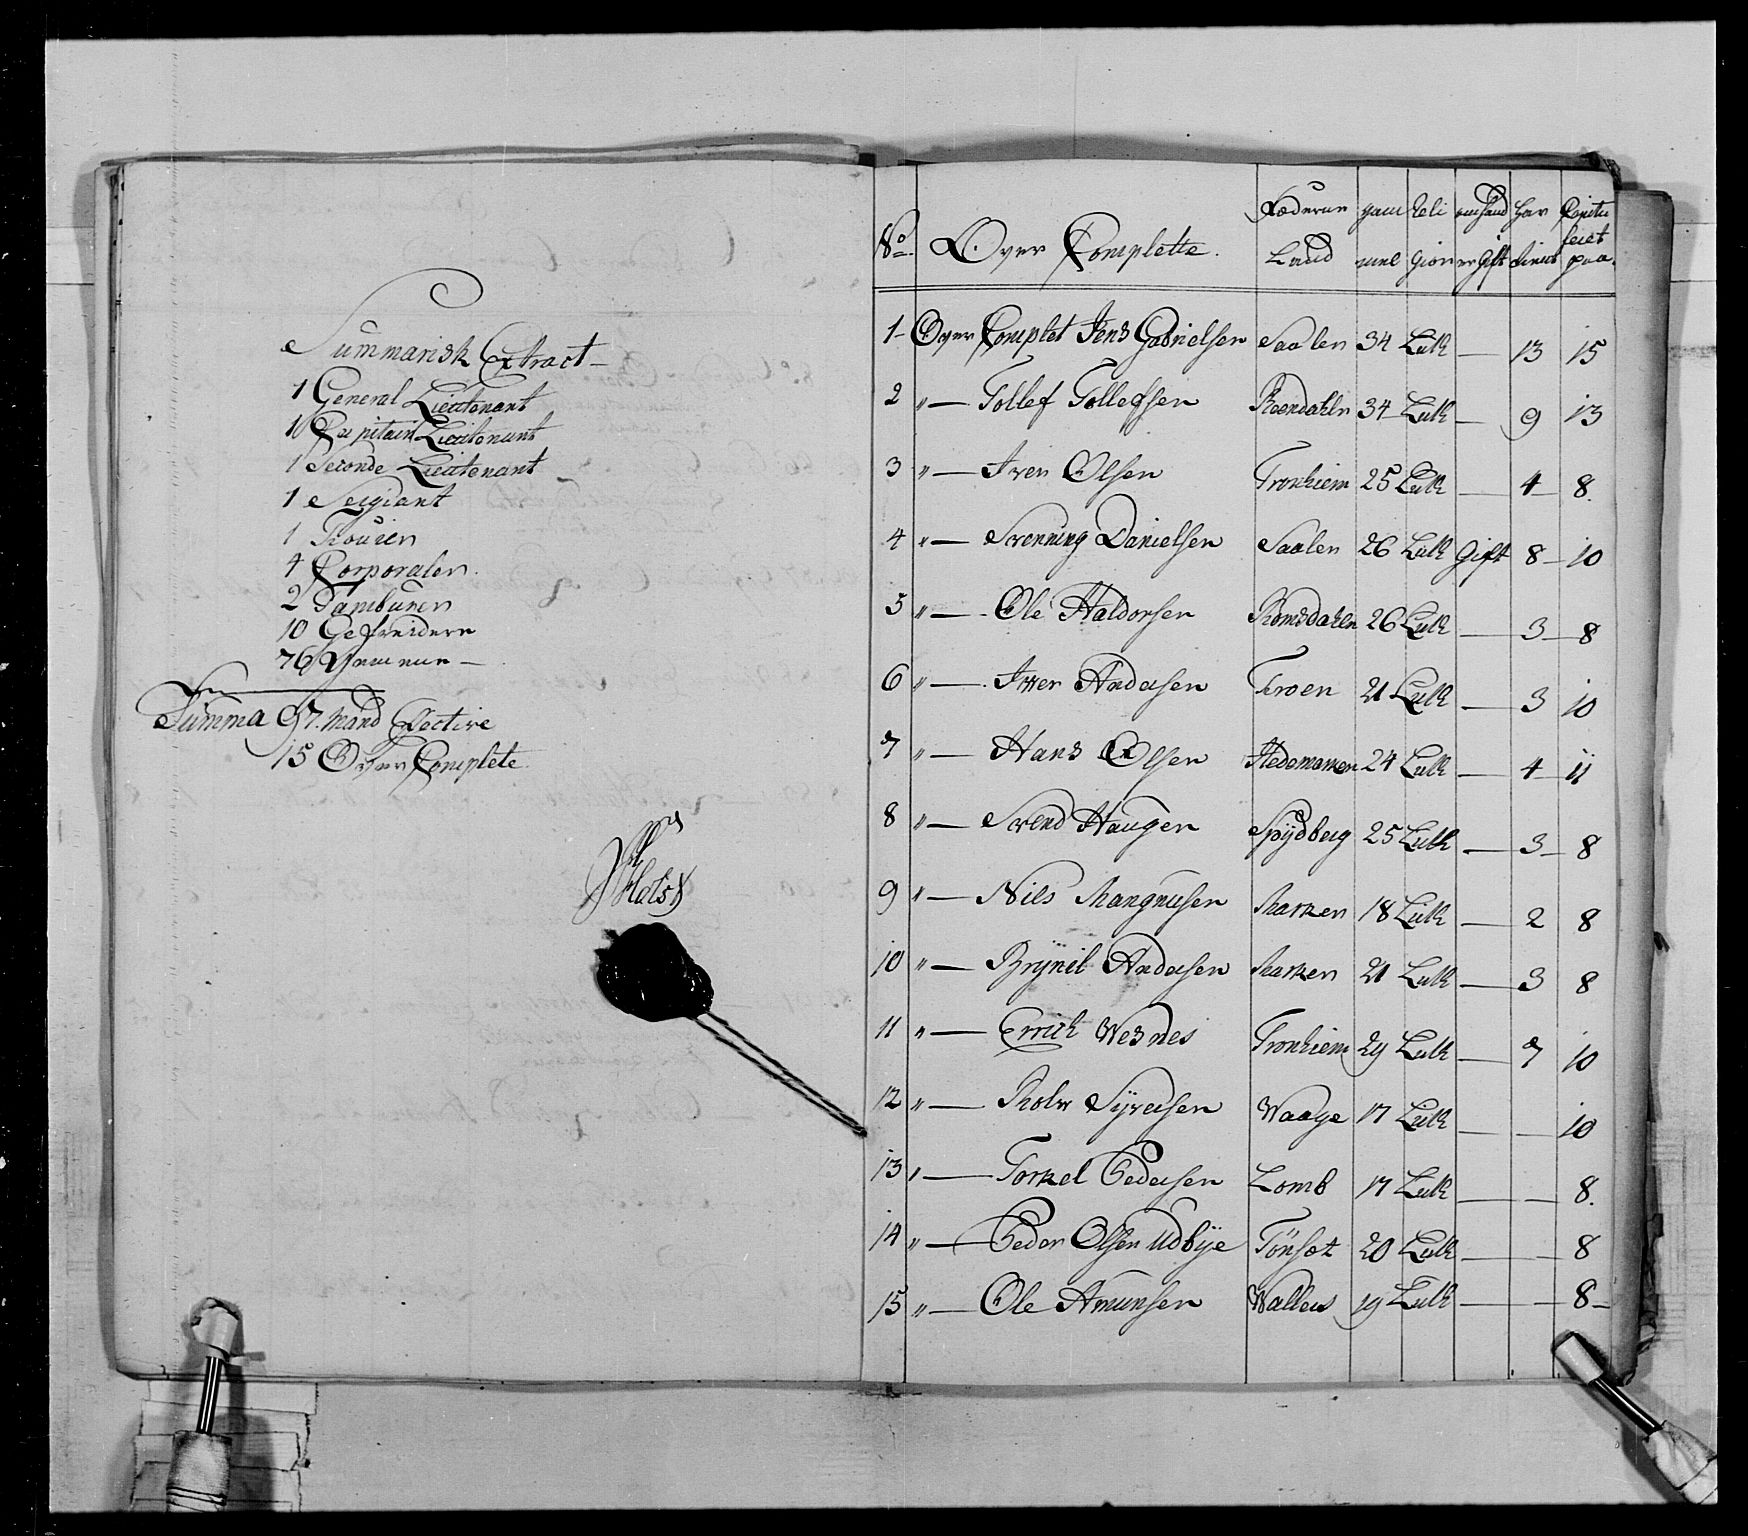 Summarisk Extract
1 General Lieutenant
1 Capitain Lieutenant
1 Seconde Lieutenant
1 Sergiant
1 Fourier
4 Corporaler
2 Tambuner
10 Gefreidere
76 Gemene
Summa 97. Mand Effective
15 Over Complete
Holst
No. Over Complette. Fæderne Land gam mel Reli gion om hand er Gift har tient Capitu leret paa.
1 Over Complet Jens Gabrielsen Saalen 34 Luth — 13 15
2 " — Tollef Tollefsen Roendahln 34 Luth — 9 13
3 " — Iver Olsen Tronhiem 25 Luth — 4 8.
4 " — Svenning Danielsen Saalen 26 Luth Gift 8 — 10
5 " — Ole Haldorsen Romsdahln 26 Luth — 3 — 8
6 " — Iver Andersen Kroen 21 Luth — 3 10
7 " — Hans Olsen Hedemarken 24 Luth — 4 — 11
8 " — Svend Haugen Spijdberg 25 Luth — 3 — 8
9 " — Nils Mangnusen Marken 18 Luth — 2 8
10 " — Brijnil Andersen Marken 21 Luth — 3 8
11 " — Errich Wesnes Tronhiem 29 Luth — 7 10
12 " — Rolv Sijversen Waage 17 Luth — — 10
13 " — Torkel Pedersen Lomb 17 Luth — — 8.
14 " — Peder Olsen Udbije Tönset 20 Luth — — 8
15 " — Ole Amunsen Walders 19 Luth — — 8 —